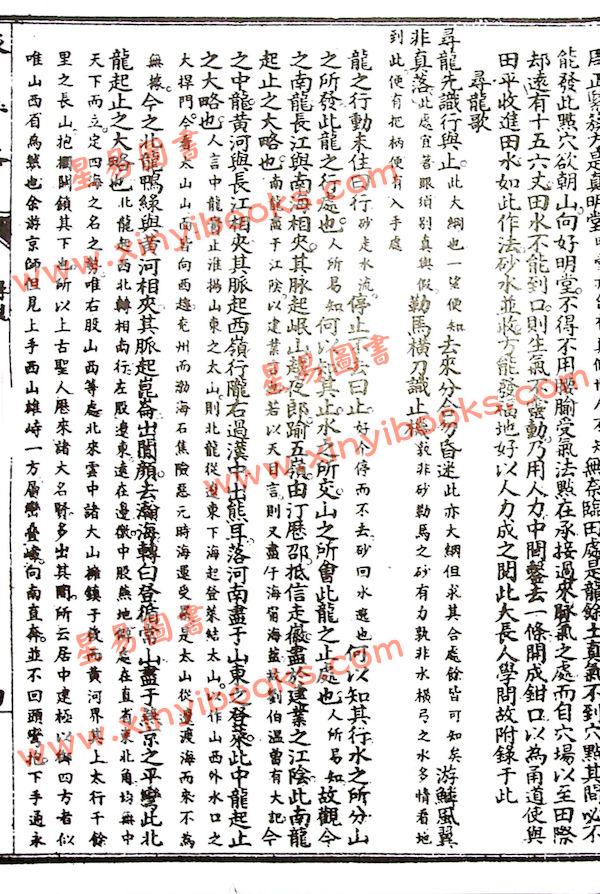 能發此點穴欲朝山向好明堂不得不用騎脈受氣法點在承接過來脉氣之處而自穴場以至田際
却遠有十五六丈田水不能到口則生氣不靈動乃用人力中間鑿去一條開成鉗口以為甬道使與
田平收進田水如此作法砂水並收方能發福地好以人力成之因此大長人學問故附錄于此
尋龍歌
尋龍先識行與止此大綱也一望便知去來分合勿昏迷此亦大綱但求其合處餘皆可知矣游鱗風翼
非真落此處宜著眼須別真與假勒馬橫刀識止機
到此便有把柄便有入手處
龍之行動未住曰行砂走水流停止不去曰止好砂停而不去砂回水遶也何以知其行水之所分山
之所發此龍之行處也人所易知何以知其止水之所交山之所會此龍之止處也人所易知故觀今
之南龍長江與南海相夾其脉起岷山趨夜郎踰五嶺由汀歷邵抵信走徽盡於建業之江陰此南龍
起止之大略也南龍盡于江陰以建業曰盡若以天目言則又盡于海甯海鹽故劉伯溫曾有大記今
之中龍黃河與長江相夾其脉起西嶺行隴右過漢中出熊耳落河南盡于山東之登萊此中龍起止
之大略也人言中龍實止淮揚山東之太山則北龍從遼東下海起登萊結太山以作山西外水口之
大捍門今看太山山面皆向西趨兗州而渤海石焦險惡元時海運受累是太山從遼渡海而來不為
無據今之北龍鴨綠與黃河相夾其脉起崑崙出闐顏去瀚海轉白登循常山盡于燕京之平巒此北
龍起止之大略也北龍起西北轉相南行左股遼東遠在邊徼中股燕地僻處在直省東北角均無中
天下而立定四海之名之勢唯右股山西等處北來雲中諸大山擁鎮于後而黃河界其上太行千餘
里之長山抱攔關鎖其下也所以上古聖人歷來諸大名賢多出其間所云居中建極以御四方者似
唯山西省為然也余游京師但見上手西山雄峙一方層巒疊嶂向南直奔並不回頭彎抱下手通永
星易圖書
www.xinyibooks.com
星易圖書
www.xinyibooks.com
星易圖書
www.xinyibooks.com